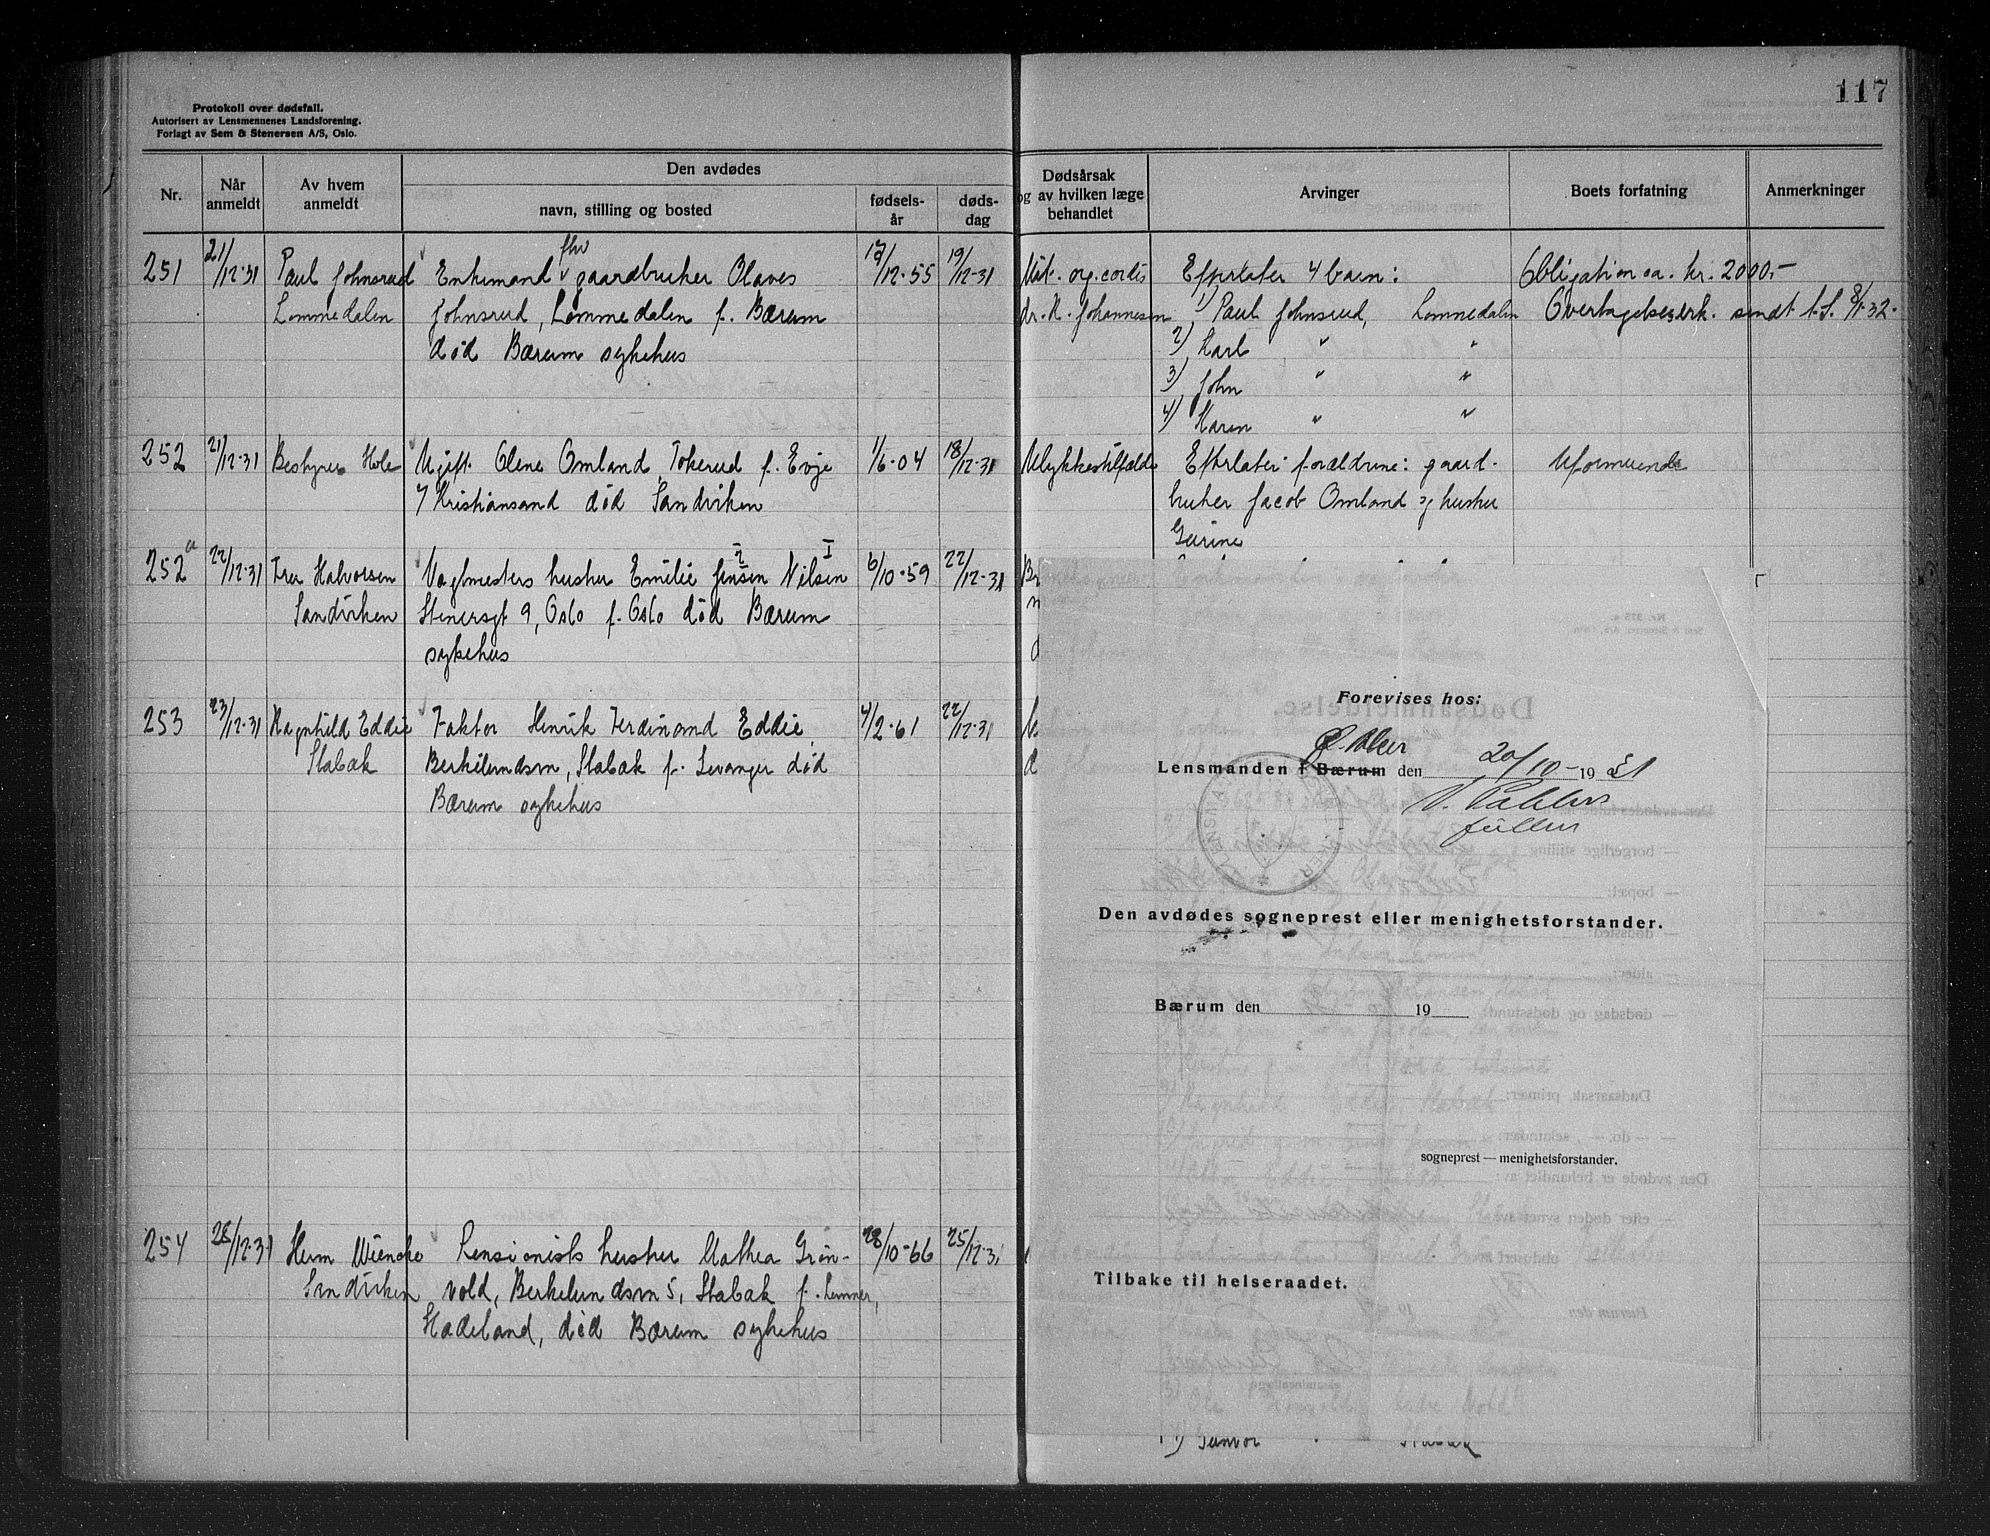 117
Protokoll over dødsfall.
Autorisert av Lensmennenes Landsforening.
Forlagt av Sem & Stenersen A/S, Oslo.
Nr.
Når anmeldt
Av hvem anmeldt
Den avdødes
navn, stilling og bosted
fødsels-år
døds-dag
Dødsårsak
og av hvilken læge
behandlet
Arvinger
Boets forfatning
Anmerkninger
251 21/12-31 Paul Johnsrud
Lommedalen
fhv
Enkemand gaardbruker Olaves
Johnsrud, Lommedalen f. Bærum
død Bærum sykehus
17/12-55 19/12-31
dr. K. Johannesen
Efterlater 4 barn:
1) Paul Johnsrud, Lommedalen
2) Karl " "
3) John " "
4) Karen " "
Obligation ca. kr. 2000,-
Overtagelseserk. sendt t.S. 8/1-32.
252 21/12-31 Bestyrer Hole
Ugift Olene Omland Tokerud f. Evje
7 Kristiansand død Sandviken
1/6-04 18/12-31 Ulykkestilfælde
Efterlater forældrene: gaard-
bruker Jacob Omland og hustru
Gurine
Uformuende
252a 22/12-31 Frk Halvorsen
Sandviken
Vagtmesters hustru Emilie Jensen Nilsen
2 I
Stenersgt 9, Oslo f. Oslo død Bærum
sykehus
6/10-59 22/12-31
253 23/12-31 Ragnhild Eddie
Stabæk
Faktor Henrik Ferdinand Eddie,
Berkelundsvn, Stabæk f. Levanger død
Bærum sykehus
4/2-61 22/12-31
254 28/12-31 Herm Wiencke
Sandviken
Pensionists hustru Mathea Grøn-
vold, Berkelundsvn 5, Stabæk f. Lunner,
Hadeland, død Bærum sykehus
28/10-66 25/12-31
Forevises hos:
Ø. Aker
Lensmanden i Bærum den 20/10-1931
Den avdødes sogneprest eller menighetsforstander.
Bærum den 19
sogneprest — menighetsforstander.
Tilbake til helseraadet.
4) Gunvor " Stabæk